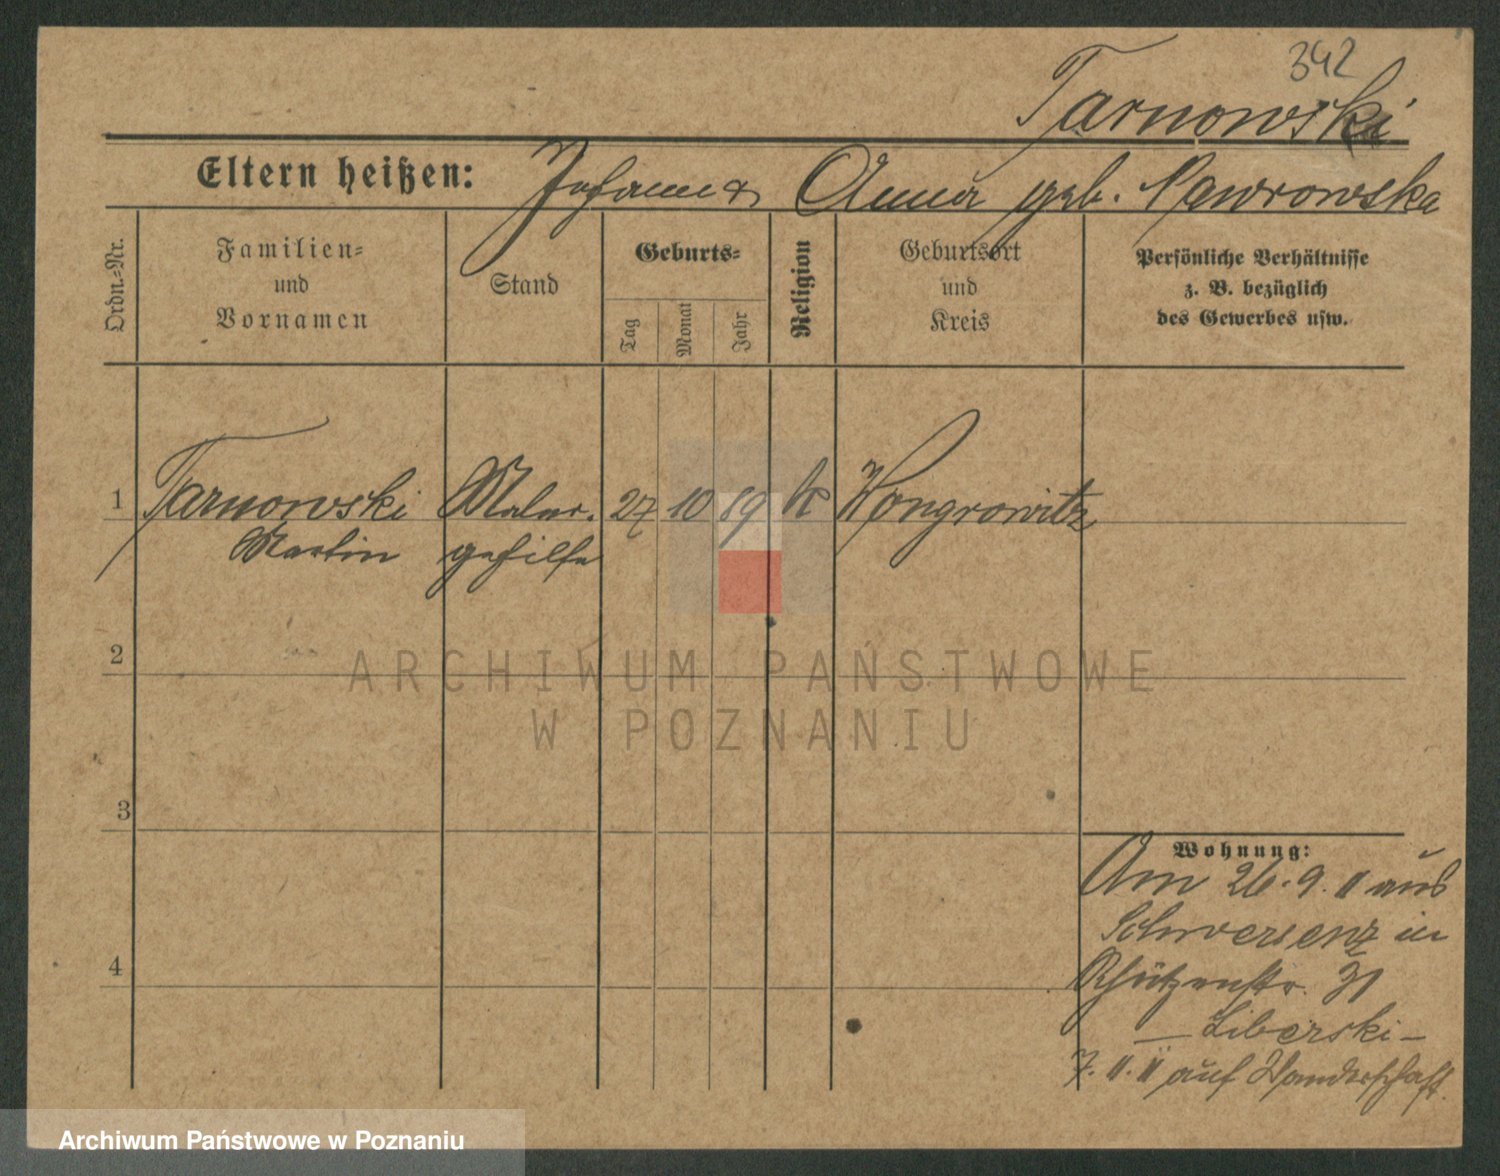 342
Tarnowski
Eltern heißen: Johann & Anna geb. Nawrowska
Ordn.-Nr.
Familien- und Vornamen
Stand
Geburts-
Tag
Monat
Jahr
Religion
Geburtsort und Kreis
Persönliche Verhältnisse
z. B. bezüglich
des Gewerbes usw.
1 Tarnowski Maler- 27 10 89 k Wongrowitz
Martin gehilfe
2
ARCHIWUM PAŃSTWOWE
W POZNANIU
3
Wohnung:
Am 26.9.11 aus
Schwersenz in
4
Schützenstr. 31
– Liberski –
7.11.11 auf Wanderschaft.
Archiwum Państwowe w Poznaniu